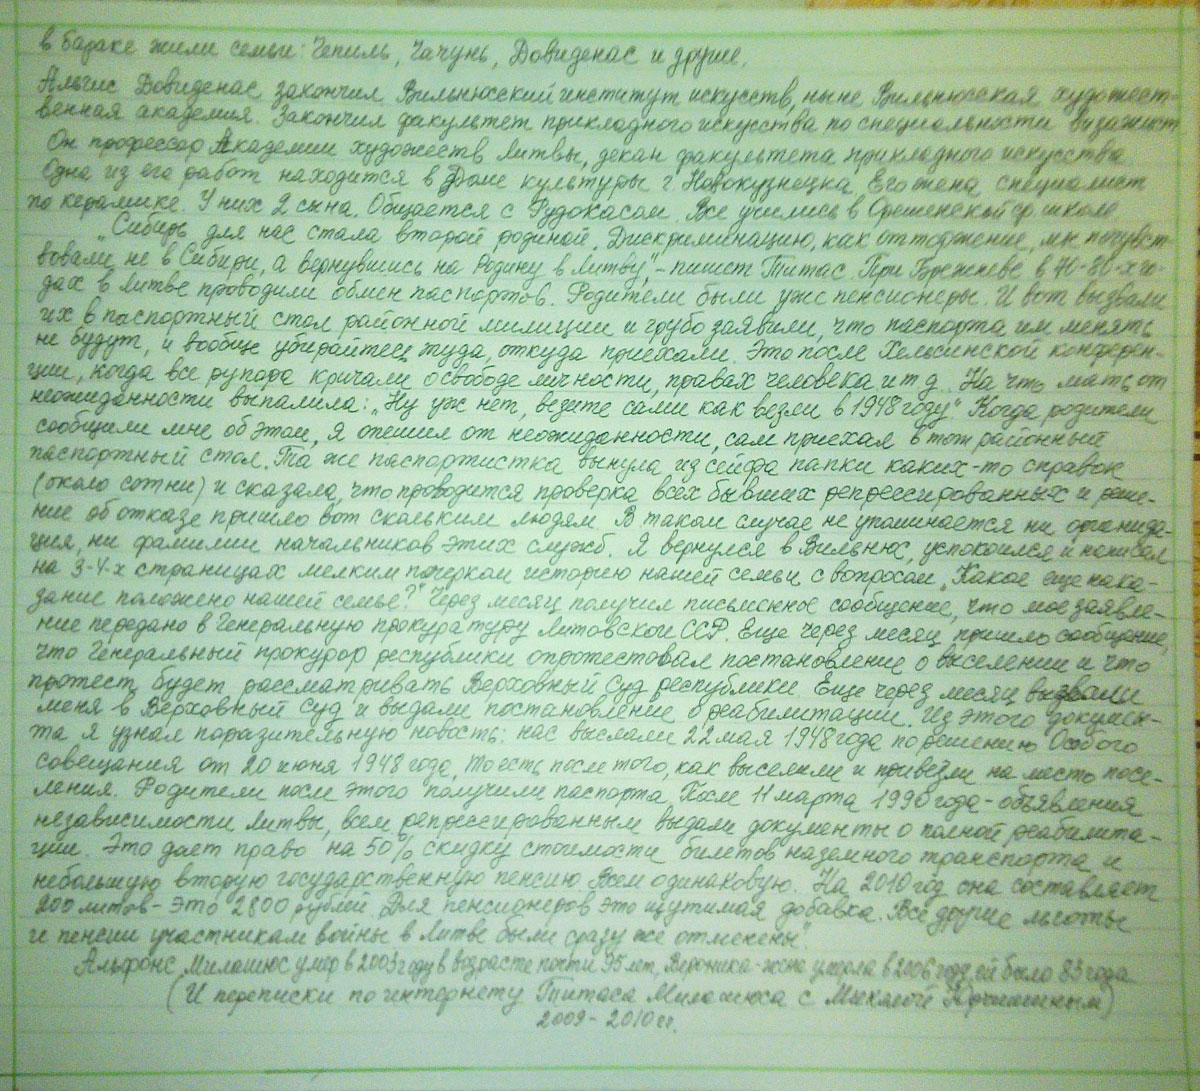 в бараке жили семьи: Чепиль, Чачунь, Довиденас и другие.
Альгис Довиденас закончил Вильнюсский институт искусств, ныне Вильнюсская художест-
венная академия. Закончил факультет прикладного искусства по специальности визажист
Он профессор Академии художеств Литвы, декан факультета прикладного искусства
Одна из его работ находится в Доме культуры г. Новокузнецка. Его жена специалист
по керамике. У них 2 сына. Общается с Рудокасом. Все учились в ср. школе
„Сибирь для нас стала второй родиной. Дискриминацию, как отторжение, мы почувст-
вовали не в Сибири, а вернувшись на Родину в Литву," - пишет Титас. При Брежневе в 70-80-х го-
дах в Литве проводили обмен паспортов. Родители были уже пенсионеры. И вот вызвали
их в паспортный стол районной милиции и грубо заявили, что паспорта им менять
не будут, и вообще убирайтесь туда, откуда приехали. Это после Хельсинской конферен-
ции, когда все рупора кричали о свободе личности, правах человека и т д. На что мать от
неожиданности выпалила: „Ну уж нет, везите сами как везли в 1948 году". Когда родители
сообщили мне об этом, я опешил от неожиданности, сам приехал в тот районный
паспортный стол. Та же паспортистка вынула из сейфа папки каких-то справок
(около сотни) и сказала, что проводится проверка всех бывших репрессированных и реше-
ние об отказе пришло вот скольким людям. В таком случае не упоминается ни организа-
ция, ни фамилии начальников этих служб. Я вернулся в Вильнюс, успокоился и написал
на 3-4-х страницах мелким почерком историю нашей семьи с вопросом „Какое еще нака-
зание положено нашей семье?" Через месяц получил письменное сообщение, что мое заявле-
ние передано в Генеральную прокуратуру Литовской ССР. Еще через месяц пришло сообщение,
что Генеральный прокурор республики опротестовал постановление о выселении и что
протест будет рассматривать Верховный Суд республики. Еще через месяц вызвали
меня в Верховный Суд и выдали постановление о реабилитации. Из этого докумен-
та я узнал поразительную новость: нас выслали 22 мая 1948 года по решению Особого
совещания от 20 июня 1948 года, то есть после того, как выселили и привезли на место посе-
ления. Родители после этого получили паспорта. После 11 марта 1990 года - объявления
независимости Литвы, всем репрессированным выдали документы о полной реабилита-
ции. Это дает право на 50% скидку стоимости билетов наземного транспорта и
небольшую вторую государственную пенсию. Всем одинаковую. На 2010 год она составляет
200 литов - это 2800 рублей. Для пенсионеров это ощутимая добавка. Все другие льготы
и пенсии участникам войны в Литве были сразу же отменены".
Альфонс Милашюс умер в 2003 году в возрасте почти 95 лет, Вероника - жена умерла в 2006 году, ей было 83 года
(И переписки по интернету Титаса Милашюса с
2009 - 2010 гг.